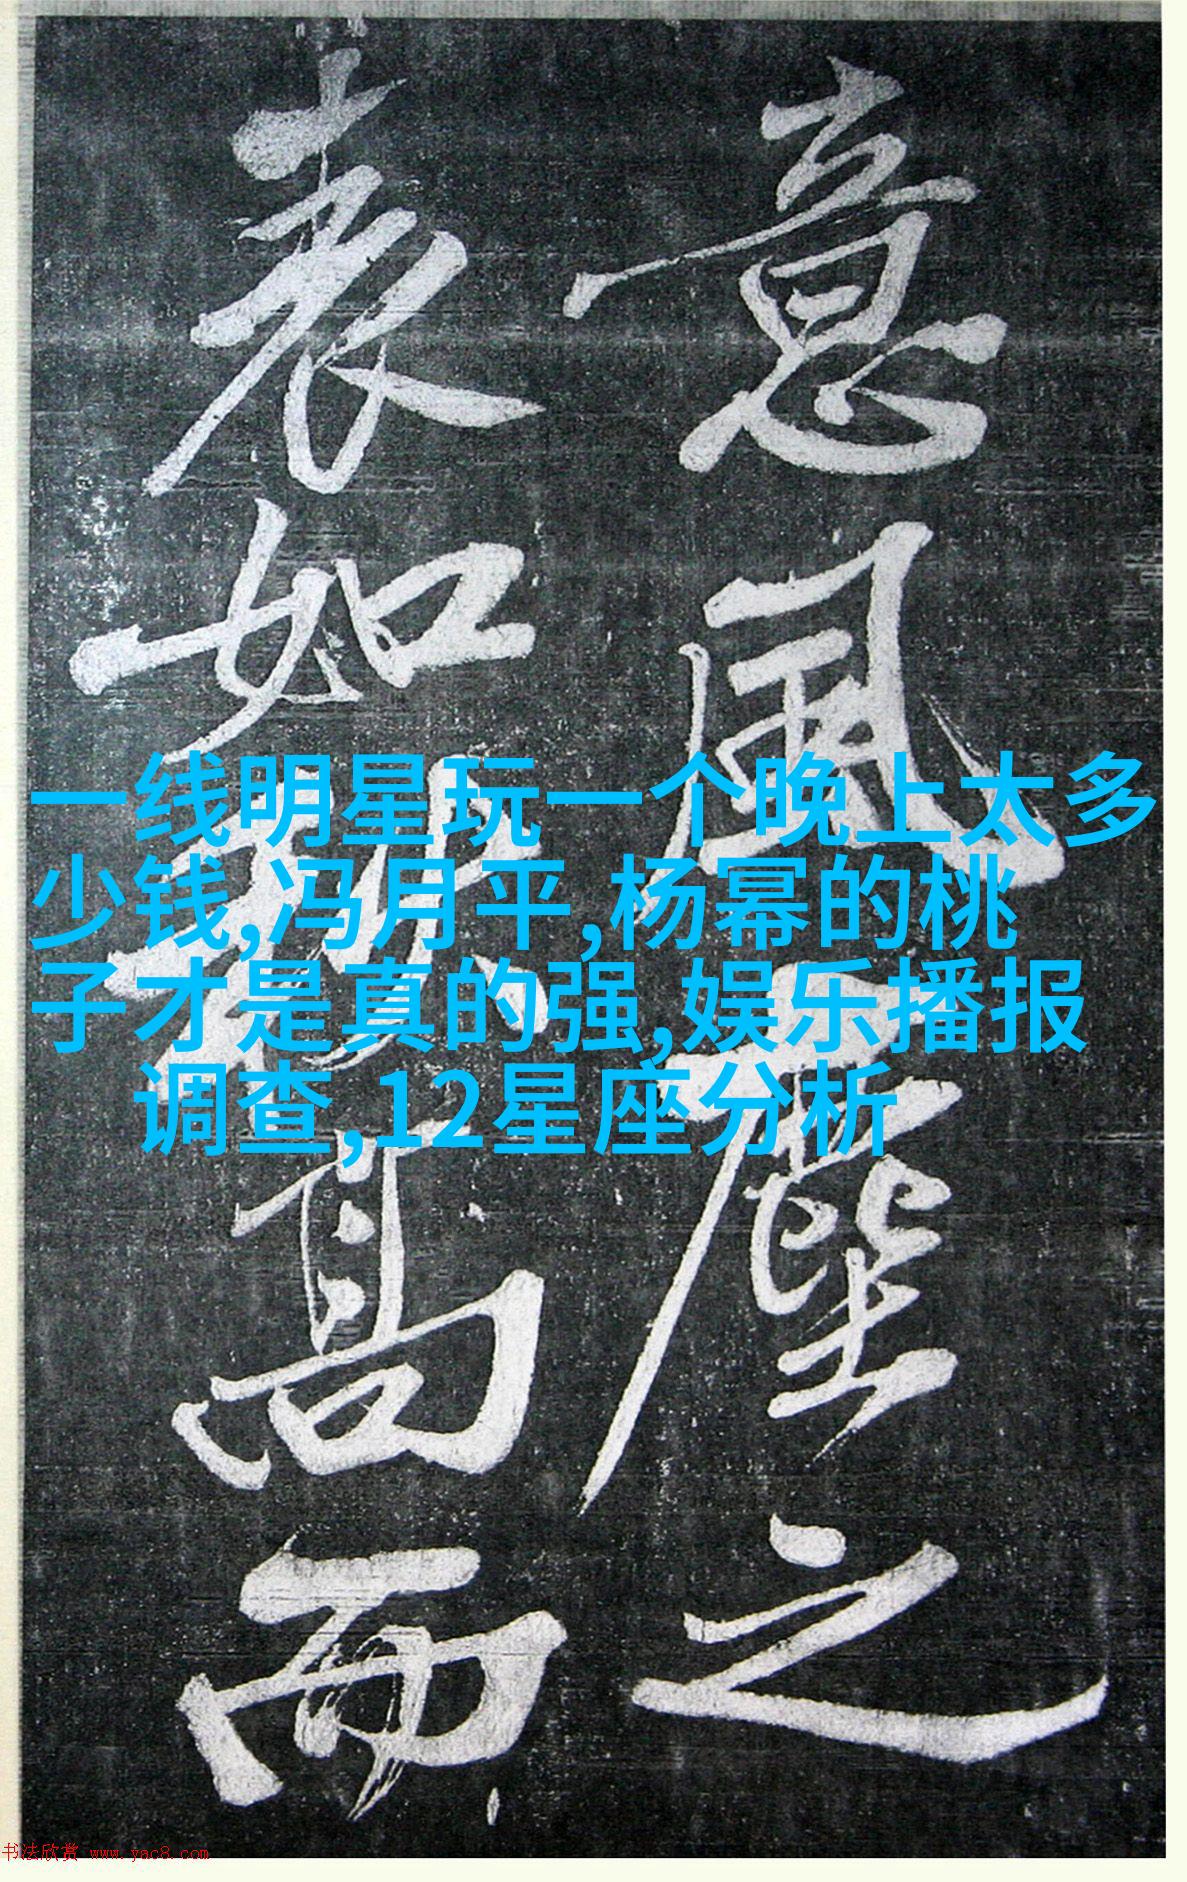 意風塵之
表如高而
一线明星玩一个晚上太多
少钱,冯月平,杨幂的桃
子才是真的强,娱乐播报
调查,12星座分析
书法欣赏 www.yac8.com